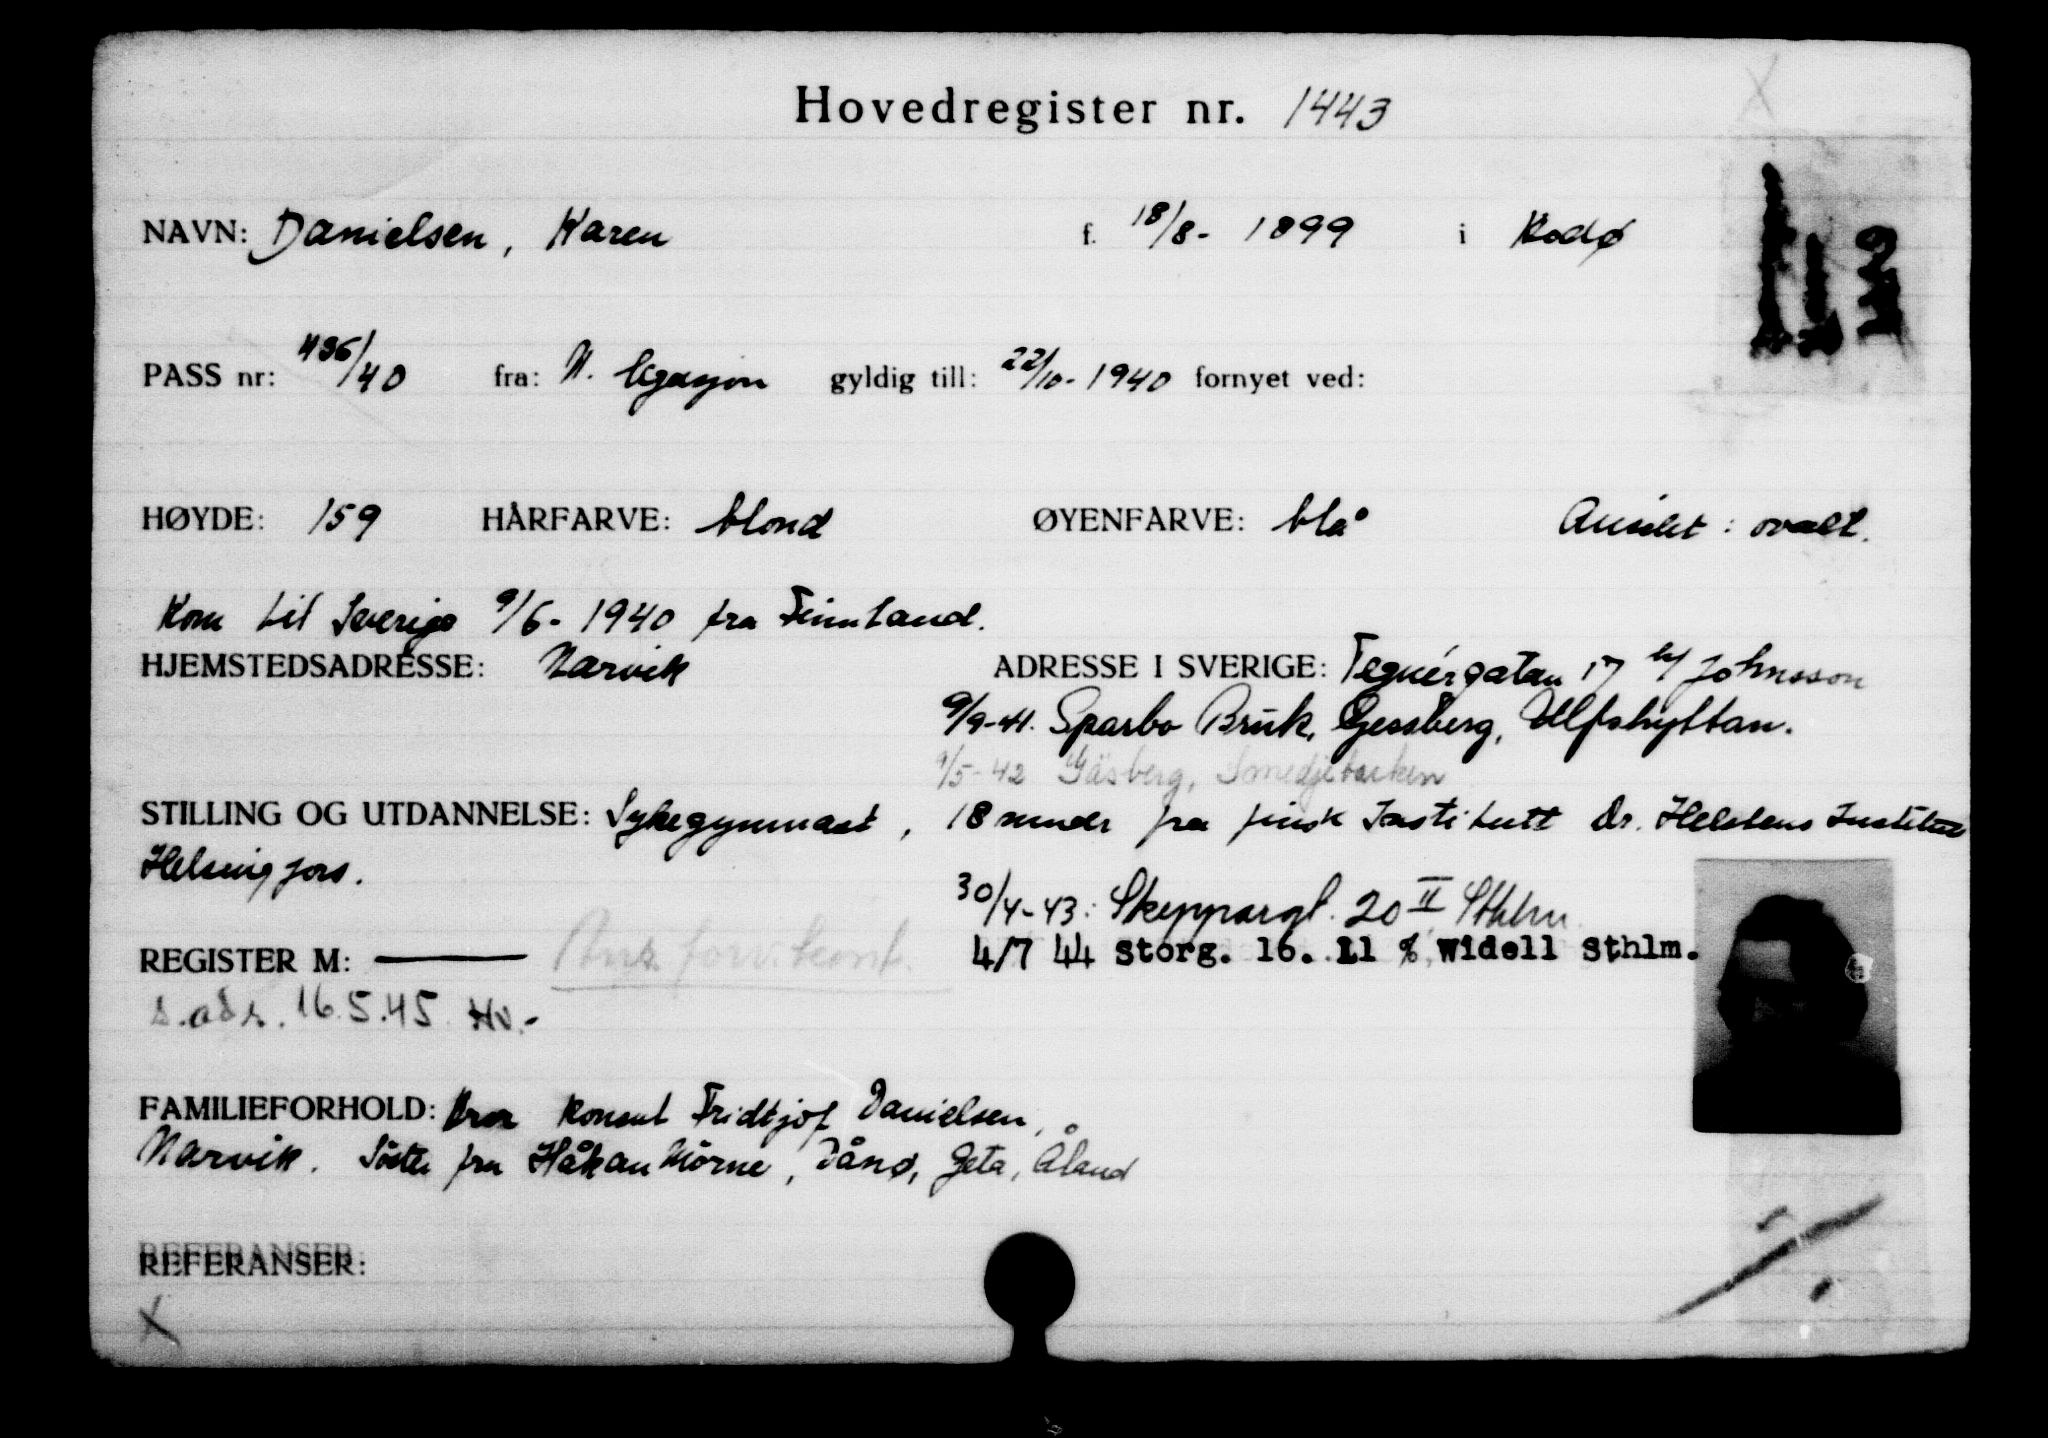 Hovedregister nr. 1443
NAVN: Danielsen, Karen f. 18/8- 1899 i Rodø
PASS nr: 436/40 fra: N. legasjon gyldig till: 22/10- 1940 fornyet ved:
HØYDE: 159 HÅRFARVE: blond ØYENFARVE: blå Ansikt: ovalt.
Kom til Sverige 9/6- 1940 fra Finnland.
HJEMSTEDSADRESSE: Narvik ADRESSE I SVERIGE: Tegnérgatan 17 b/ Johnsson
9/9-41. Sparbo Bruk, Gessberg, Ulfshyttan.
1/5-42 Gäsberg, Smedjebacken
STILLING OG UTDANNELSE: Sykegymnast, 18 mndr fra finsk Institutt Dr. Helstens Institut
Helsingfors.
30/4-43: Skeppargt. 20 II Sthlm.
REGISTER M: —— 4/7 44 Storg. 16. 11 %, Widell Sthlm.
s.adr. 16.5.45 Hv.-
FAMILIEFORHOLD: Bror Konsul Fridtjof Danielsen,
Narvik. Söster fru Håkan Mörne, Dånø, Geta, Åland
REFERANSER:
X